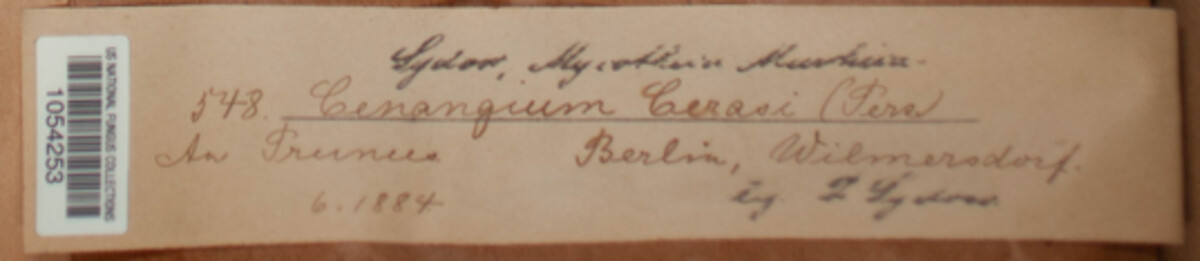 US NATIONAL FUNGUS COLLECTIONS
1054253
Sydow, Mycotheca Marchica.
548. Cenangium Cerasi (Pers)
An Prunus Berlin, Wilmersdorf.
6. 1884 leg. P Sydow